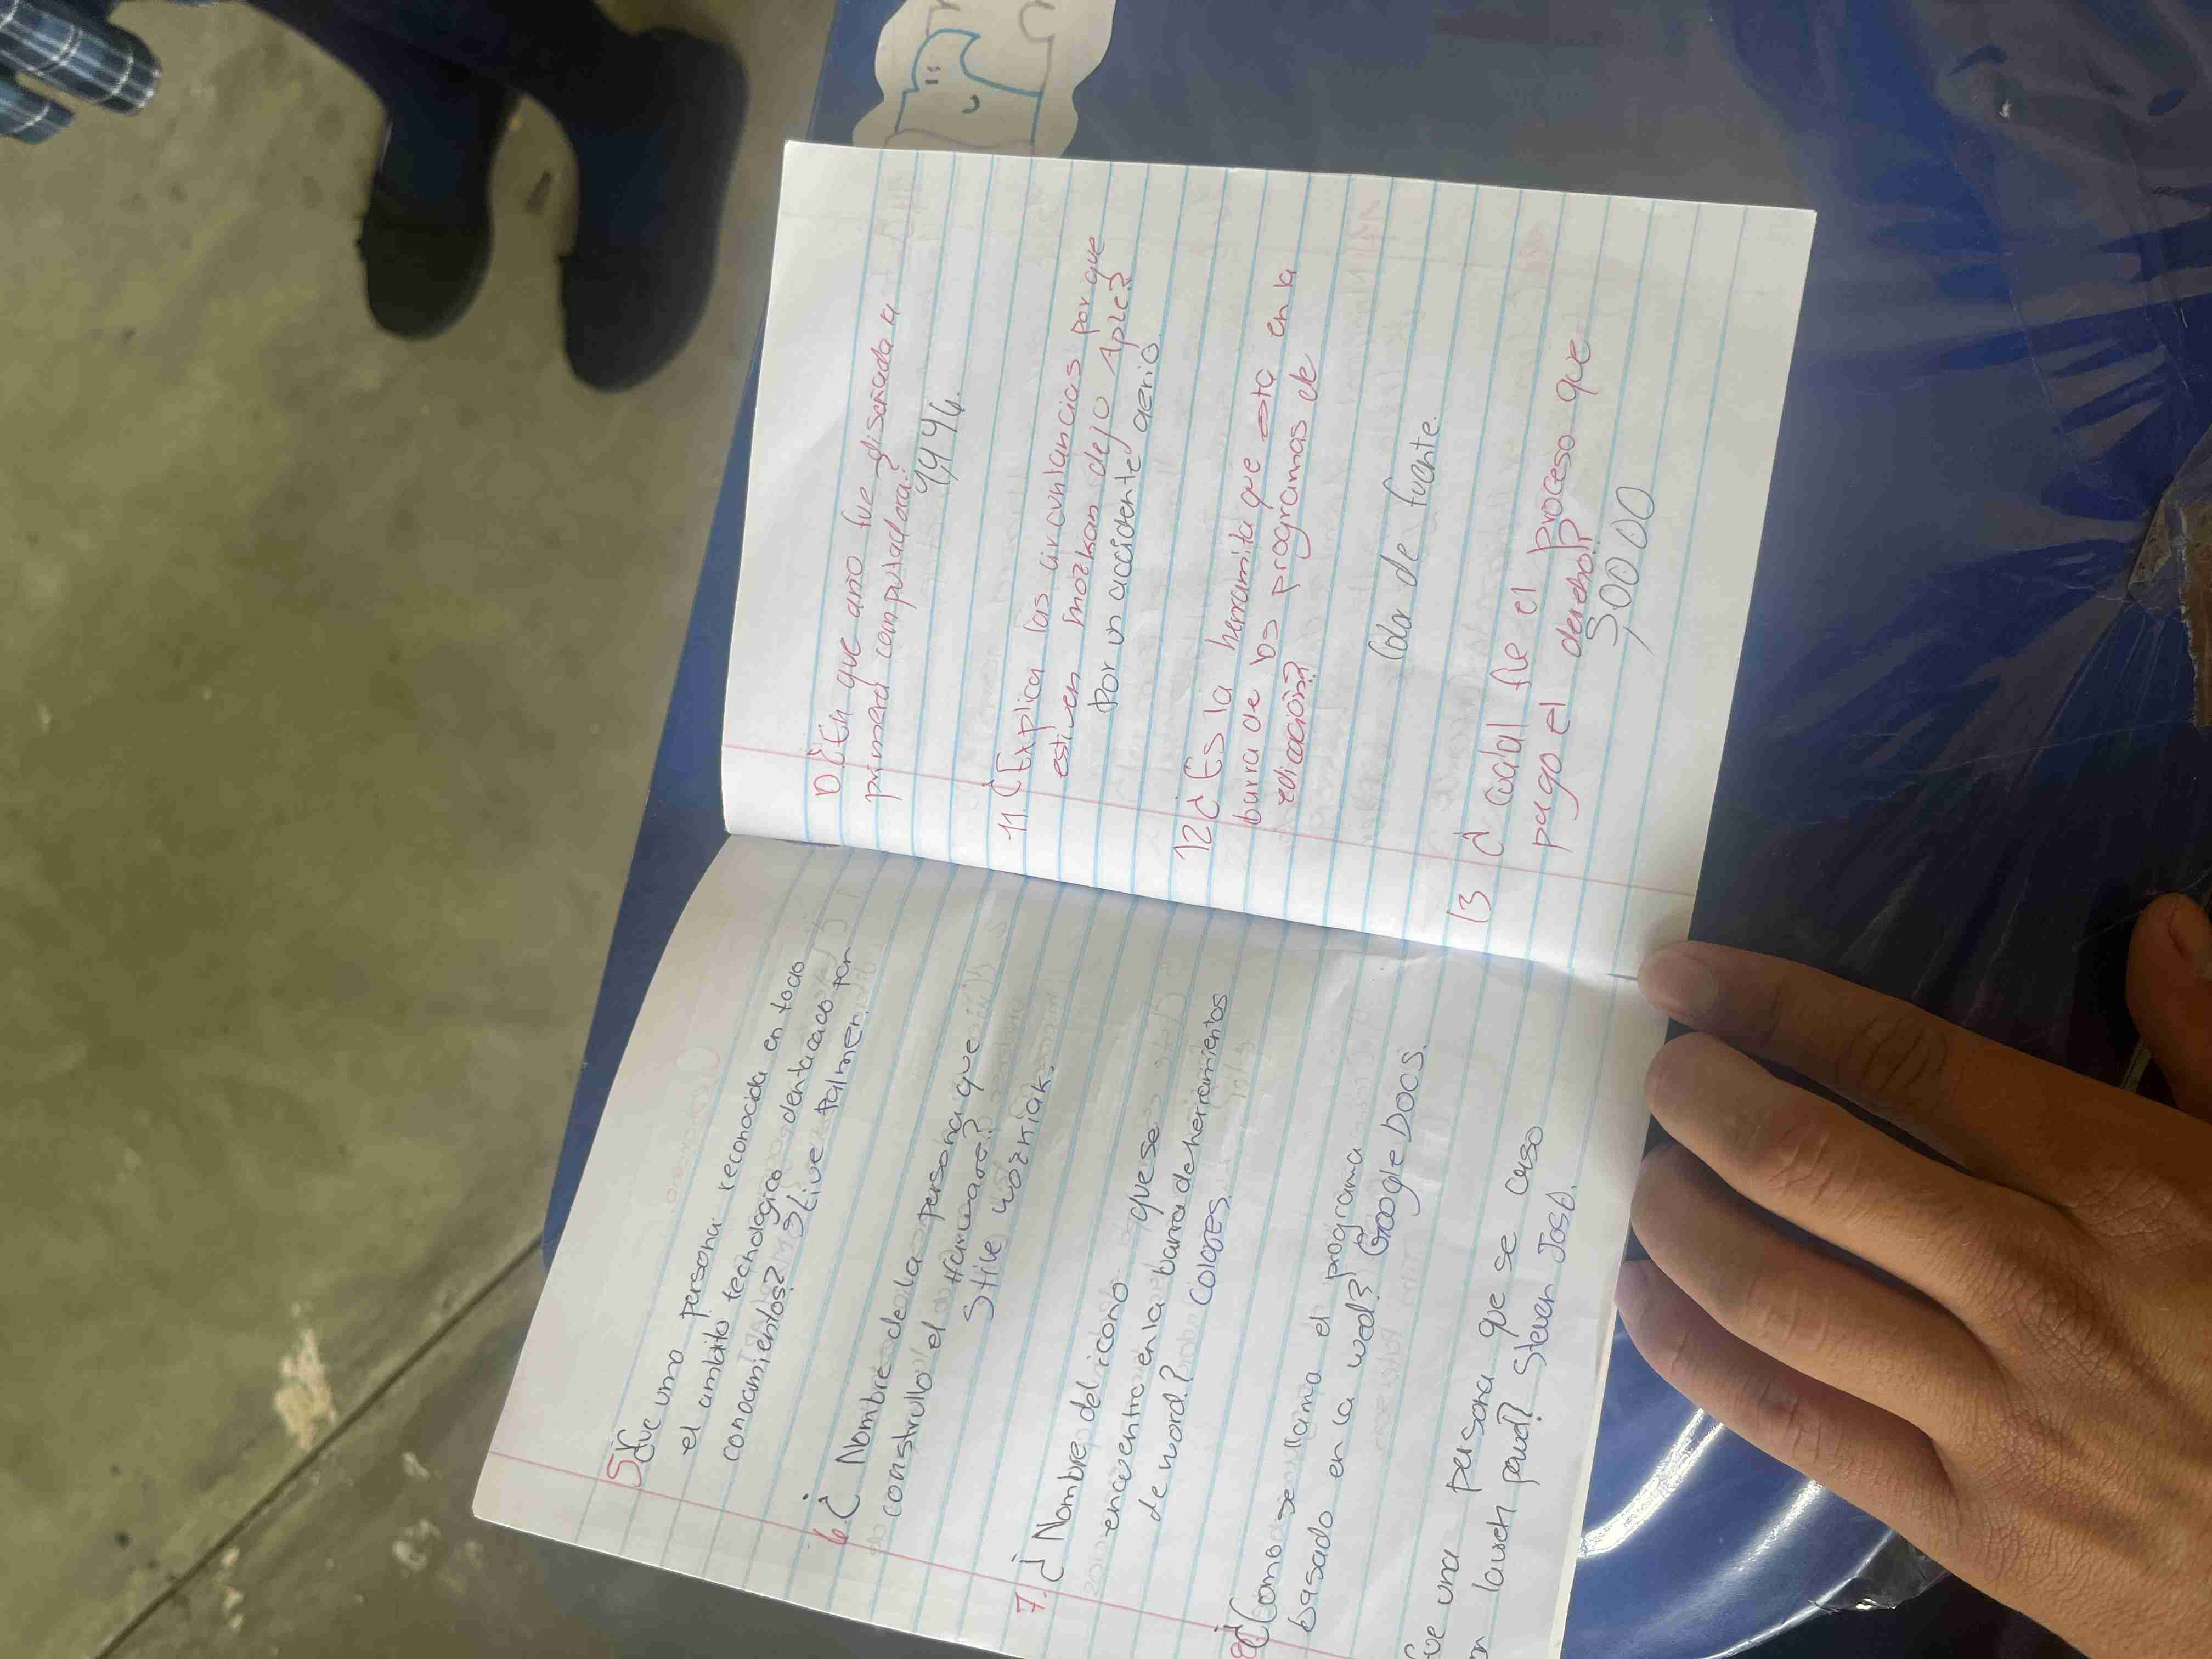 5 ¿Fue una persona reconocida en todo
el ambito tecnologico dentacaco por
conocamientos? Stive talmen.
6. ¿ Nombre de la persona que
construllo el hamware?
Stive wozniak.
7. ¿ Nombre del icono que se
encuentra en la barra de herramientos
de word? COLORES.
8 ¿Como se llama el programa
basado en la wed? Google DOOS.
fue una persona que se caso
on lauren paud? Steven Josb.
10 ¿En que año fue diseñada la
primera computadara?
1,446.
11. ¿Explica las circuntancias por que
estiven mozkan dejo Aple?
Por un accidente aerio.
12 ¿ Es la herramita que esta en la
barra de los programas de
edicación?
Color de fuente.
13 ¿ Cualal fue el proceso que
pago el dereho?
3,00 00